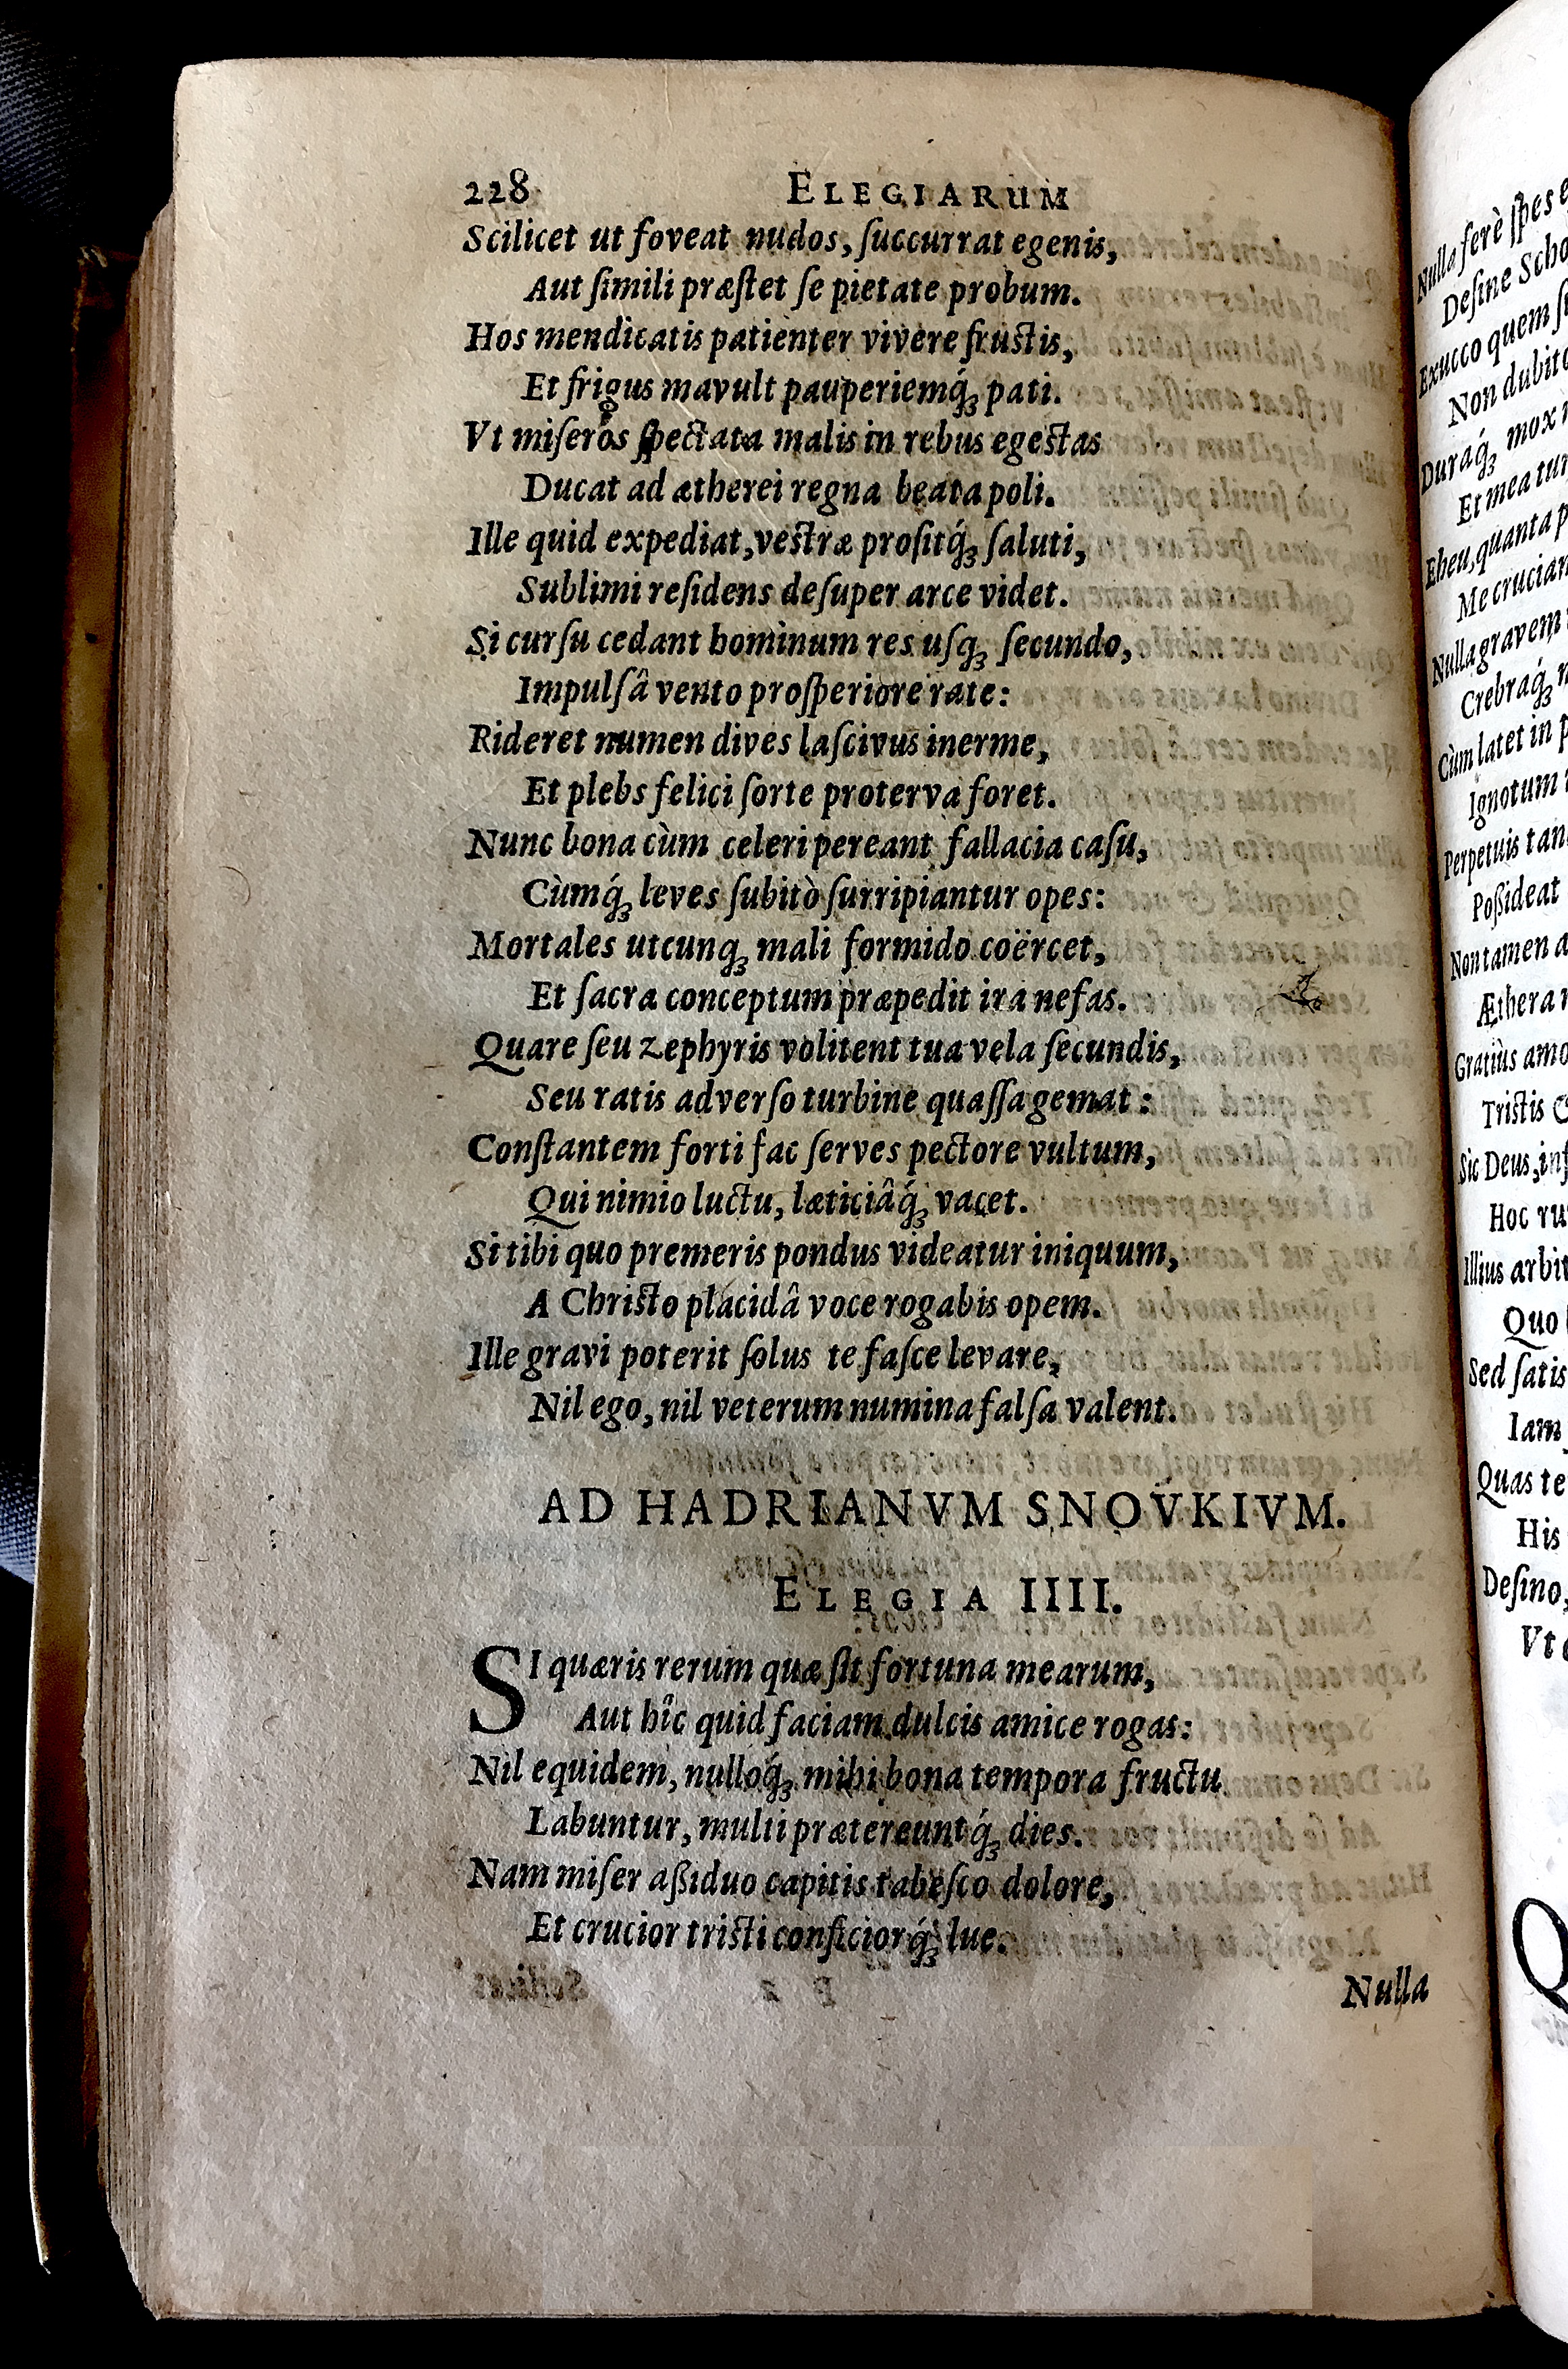 228 ELEGIARUM
Scilicet ut foveat nudos, ſuccurrat egenis,
Aut ſimili præſtet ſe pietate probum.
Hos mendicatis patienter vivere fruſtis,
Et frigus mavult pauperiemq́ꝫ pati.
Vt miſeros ſpectata malis in rebus egeſtas
Ducat ad ætherei regna beata poli.
Ille quid expediat, veſtræ proſitq́ꝫ ſaluti,
Sublimi reſidens deſuper arce videt.
Si curſu cedant hominum res uſqꝫ ſecundo,
Impulſâ vento proſperiore rate:
Rideret numen dives laſcivus inerme,
Et plebs felici ſorte proterva foret.
Nunc bona cùm celeri pereant fallacia caſu,
Cùmq́ꝫ leves ſubitò ſurripiantur opes:
Mortales utcunqꝫ mali formido coërcet,
Et ſacra conceptum præpedit ira nefas.
Quare ſeu zephyris volitent tua vela ſecundis,
Seu ratis adverſo turbine quaſſa gemat:
Conſtantem forti fac ſerves pectore vultum,
Qui nimio luctu, læticiâq́ꝫ vacet.
Si tibi quo premeris pondus videatur iniquum,
A Chriſto placidâ voce rogabis opem.
Ille gravi poterit ſolus te faſce levare,
Nil ego, nil veterum numina falſa valent.
AD HADRIANVM SNOVKIVM.
ELEGIA IIII.
SI quæris rerum quæ ſit fortuna mearum,
Aut hîc quid faciam dulcis amice rogas:
Nil equidem, nulloq́ꝫ mihi bona tempora fructu
Labuntur, multi prætereuntq́ꝫ dies.
Nam miſer aßiduo capitis tabeſco dolore,
Et crucior triſti conficiorq́ꝫ lue.
Nulla
Nulla ferè ſpes
Deſine
Exucco quem
Non
Duraq́ꝫ mox
Et mea
Eheu, quanta
Me
Nulla gravem
Crebraq́ꝫ
Cùm latet in
Ignotum
Perpetuis
Poßideat
Non tamen
Æthera
Gratiùs
Triſtis
Sic Deus,
Hoc
Illius
Quo
Sed ſatis
Iam
Quas te
His
Deſino,
Vt